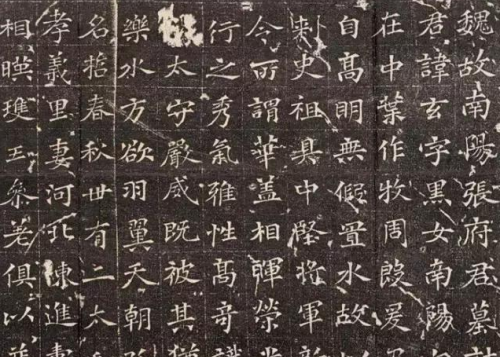 魏故南陽張府君墓
君諱玄字黑女南陽
在中葉作牧周殷爰
自高明無假置水故
刾史祖具中堅將軍
今所謂華盖相暉榮
行之秀氣雅性高奇識
太守嚴威既被其猶
樂水方欲羽翼天朝
名哲春秋卅有二太
孝義里妻河北陳進壽
相暎瓊玉參差俱以